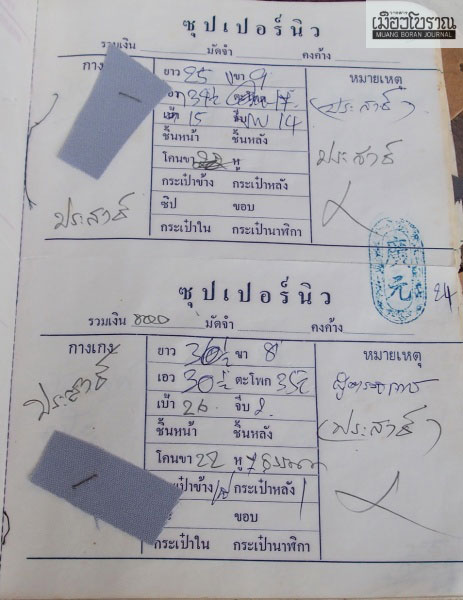 วารสาร
เมืองโบราณ
MUANG BORAN JOURNAL
ซุปเปอร์นิว
รวมเงิน มัดจำ คงค้าง
กางเกง ยาว 25 ขา 9 หมายเหตุ
34½ ตะโพก 17
เป้า 15 จีบ 14 (ประสาธ์)
ชิ้นหน้า ชิ้นหลัง ประสาธ์
โคนขา หู
กระเป๋าข้าง กระเป๋าหลัง
ประสาธ์ ซิป ขอบ
กระเป๋าใน กระเป๋านาฬิกา
元
24
ซุปเปอร์นิว
รวมเงิน มัดจำ คงค้าง
กางเกง ยาว 36½ ขา 8 หมายเหตุ
เอว 30½ ตะโพก 35½
ประสาธ์ เป้า 26 จีบ 2 (ประสาธ์)
ชิ้นหน้า ชิ้นหลัง
โคนขา 22 หู 7 ธรรมดา
กระเป๋าข้าง กระเป๋าหลัง 1
ขอบ
กระเป๋าใน กระเป๋านาฬิกา